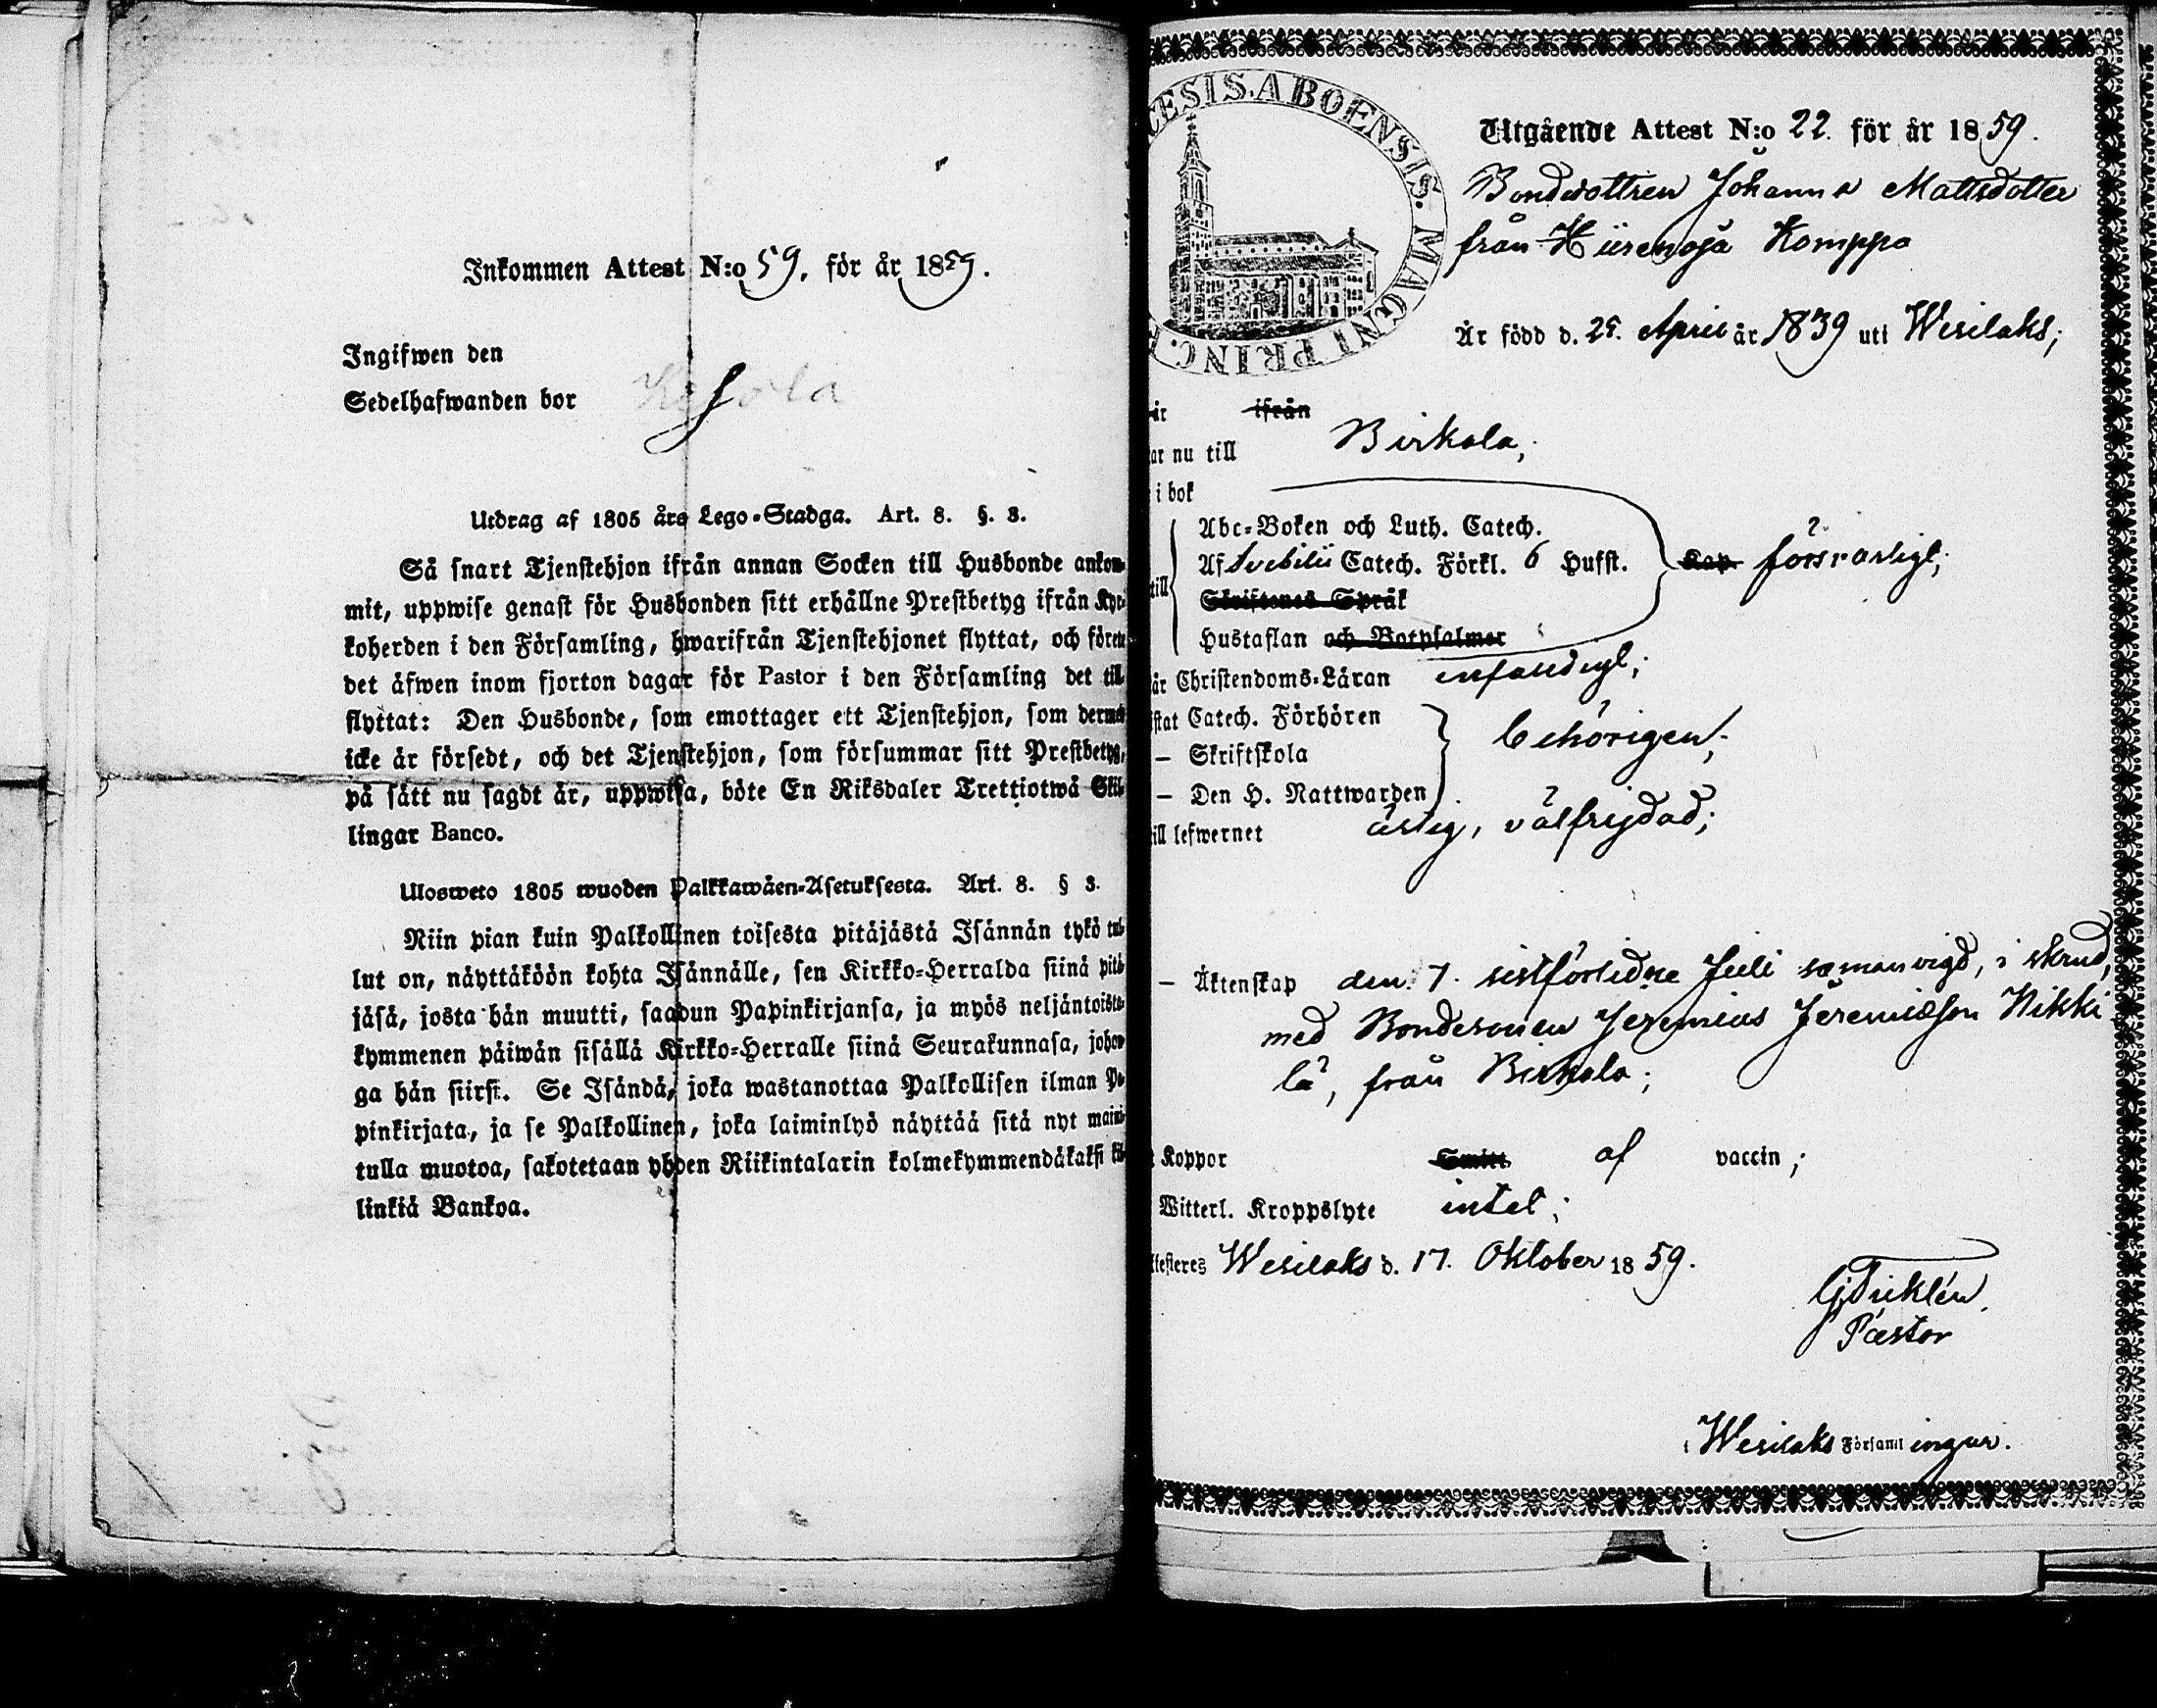 Inkommen Attest N:o 59. för år 1859.
Ingifwen den
Sedelhafwanden bor
Utdrag af 1805 års Lego-Stadga. Art. 8. §. 3.
Så snart Tjenstehjon ifrån annan Socken till Husbonde ankom-
mit, uppwise genast för Husbonden sitt erhållne Prestbetyg ifrån Kyr-
koherden i den Församling, hwarifrån Tjenstehjonet flyttat, och förete
det äfwen inom fjorton dagar för Pastor i den Församling det till-
flyttat: Den Husbonde, som emottager ett Tjenstehjon, som dermed
icke är försedt, och det Tjenstehjon, som försummar sitt Prestbetyg,
på sätt nu sagdt är, uppwisa, böte En Riksdaler Trettiotwå Skil-
lingar Banco.
Ulosweto 1805 wuoden Palkkawäen-Asetuksesta. Art. 8. § 3.
Niin pian kuin Palkollinen toisesta pitäjästä Isännän tykö tul-
lut on, näyttäköön kohta Isännälle, sen Kirkko-Herralda siinä pitä-
jäsä, josta hän muutti, saadun Papinkirjansa, ja myös neljäntoista-
kymmenen päiwän sisällä Kirkko-Herralle siinä Seurakunnasa, johon-
ga hän siirsi. Se Isändä, joka wastanottaa Palkollisen ilman Pa-
pinkirjata, ja se Palkollinen, joka laiminlyö näyttää sitä nyt maini-
tulla muotoa, sakotetaan yhden Riikintalarin kolmekymmendäkaksi kil-
linkiä Bankoa.
CESIS. ABOENSIS. MAGNI PRINC. F
Utgående Attest N:o 22. för år 1859.
Bondedottren Johanna Mattsdotter
från Hiirenoja Komppa
Är född d. 25. April år 1839 uti Wesilaks;
är ifrån
ar nu till Birkala;
i bok
Abc-Boken och Luth. Catech.
till Af Svebilii Catech. Förkl. 6 Hufst. Kap. försvarligt;
Skriftenes Språk
Hustaflan och Botpsalmer
år Christendoms-Läran enfaldigt;
istat Catech. Förhören
— Skriftskola behörigen;
— Den H. Nattwarden
ill lefwernet ärlig, välfrejdad;
— Äktenskap den 7. sistförlidne Juli samanvigd, i skrud,
med Bondesonen Jeremias Jeremiæson Nikki
lä, från Birkala;
t Koppor Smitt af vaccin;
Witterl. Kroppslyte intet;
ttesteres Wesilaks d. 17. Oktober 1859.
Pastor
i Wesilaks Församlingar.